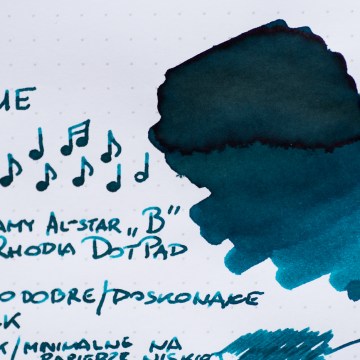 UE
AMY AL-STAR „B”
RHODIA DOTPAD
ODOBRE/DOSKONAŁE
K
K/MINIMALNE NA
PAPIERZE NISKIEJ